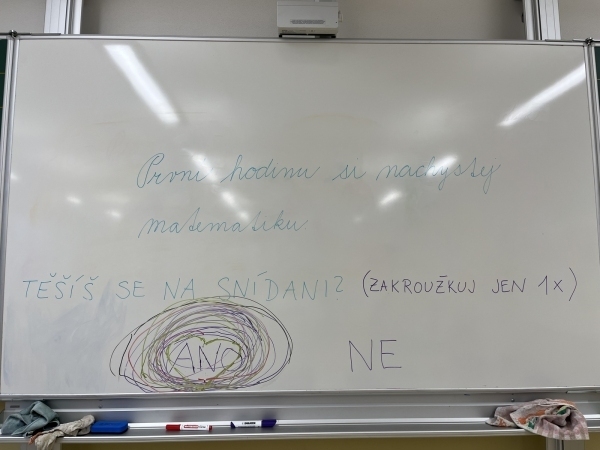 První hodinu si nachystej
matematiku
TĚŠÍŠ SE NA SNÍDANI? (ZAKROUŽKUJ JEN 1x)
ANO NE